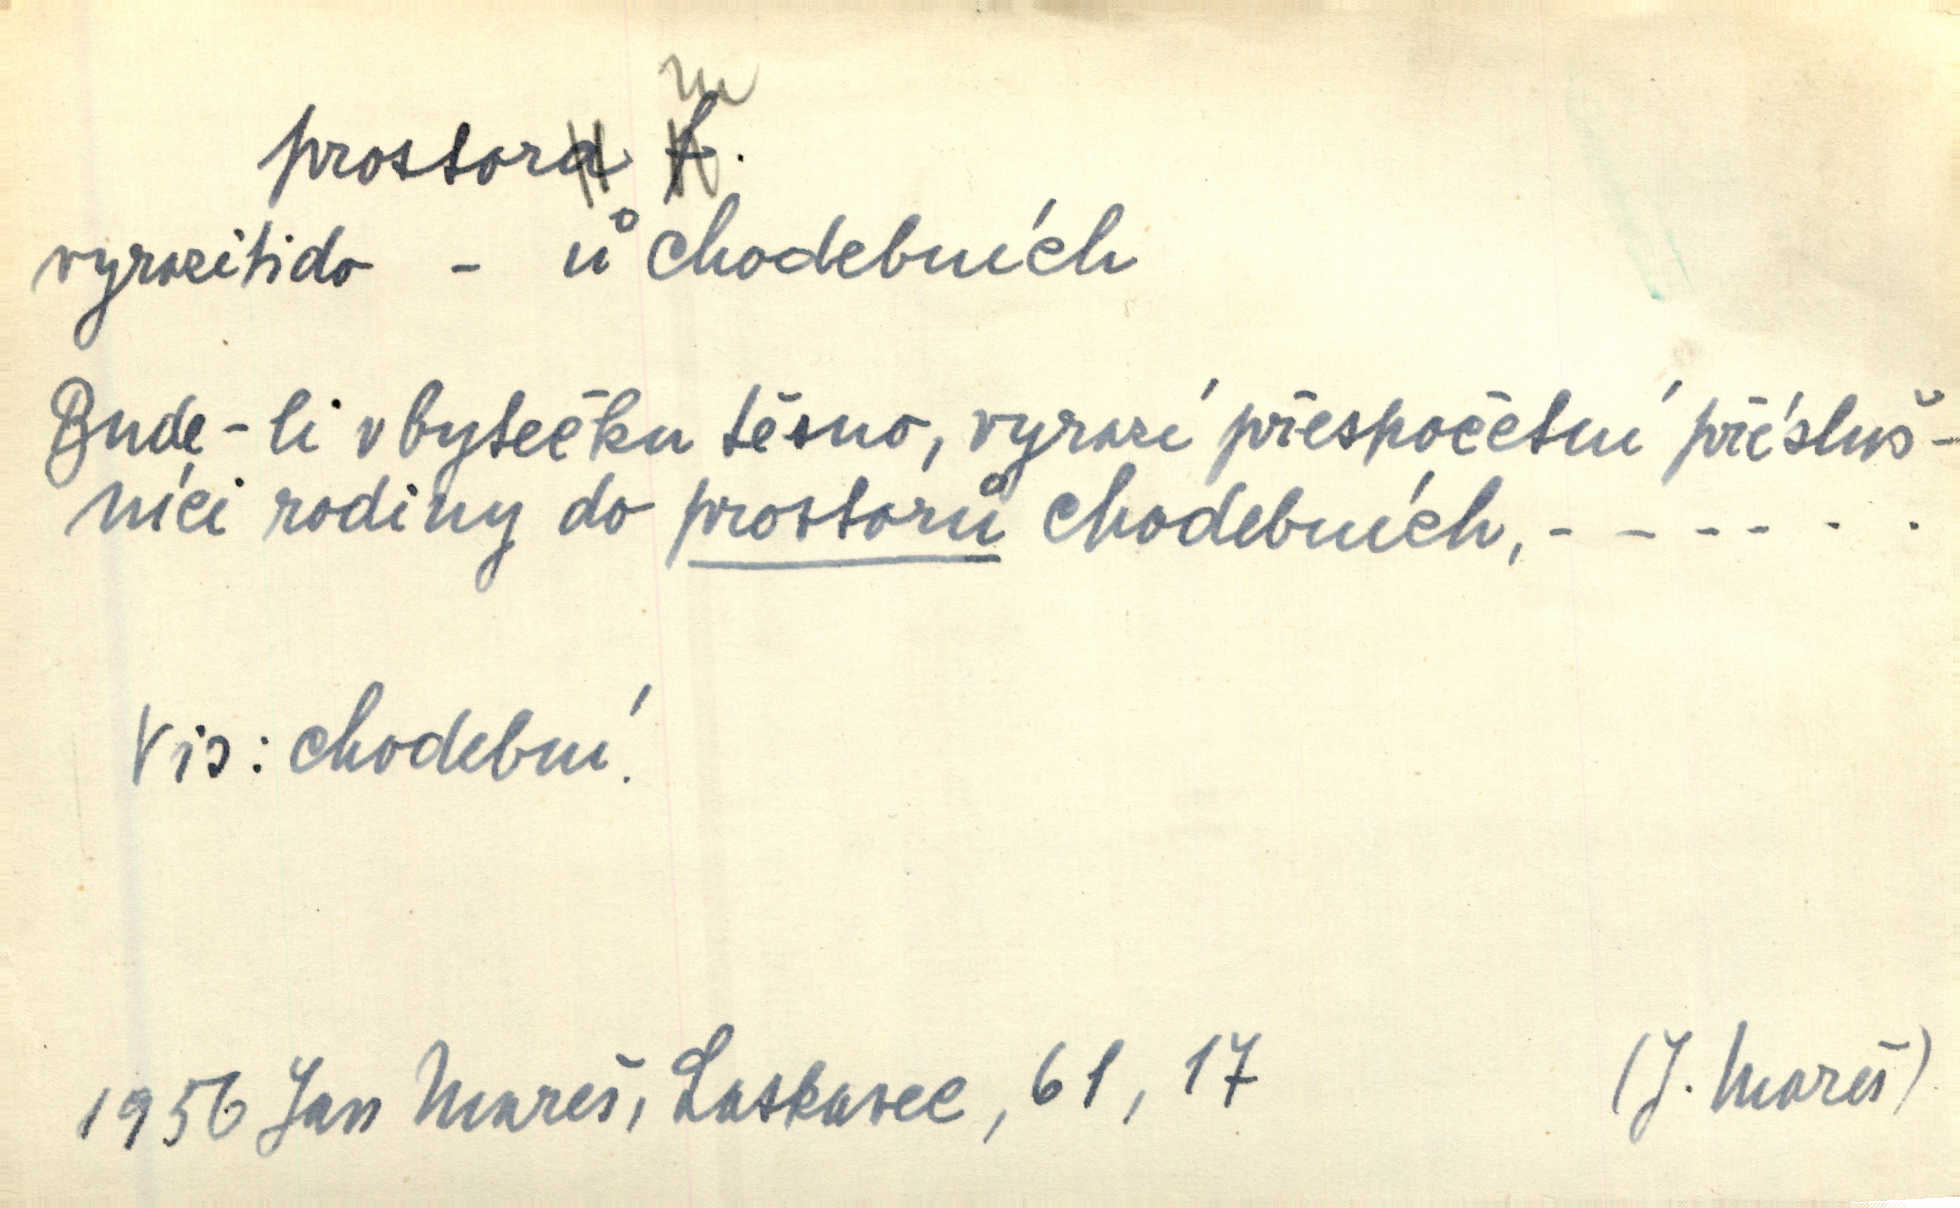 m
prostora f.
vyraziti do - ů chodebních
Bude-li v bytečku těsno, vyrazí přespočetní přísluš-
níci rodiny do prostorů chodebních, - - - - - -
Viz: chodební.
1956 Jan Mareš, Laskavec, 61, 17 (J. Mareš)